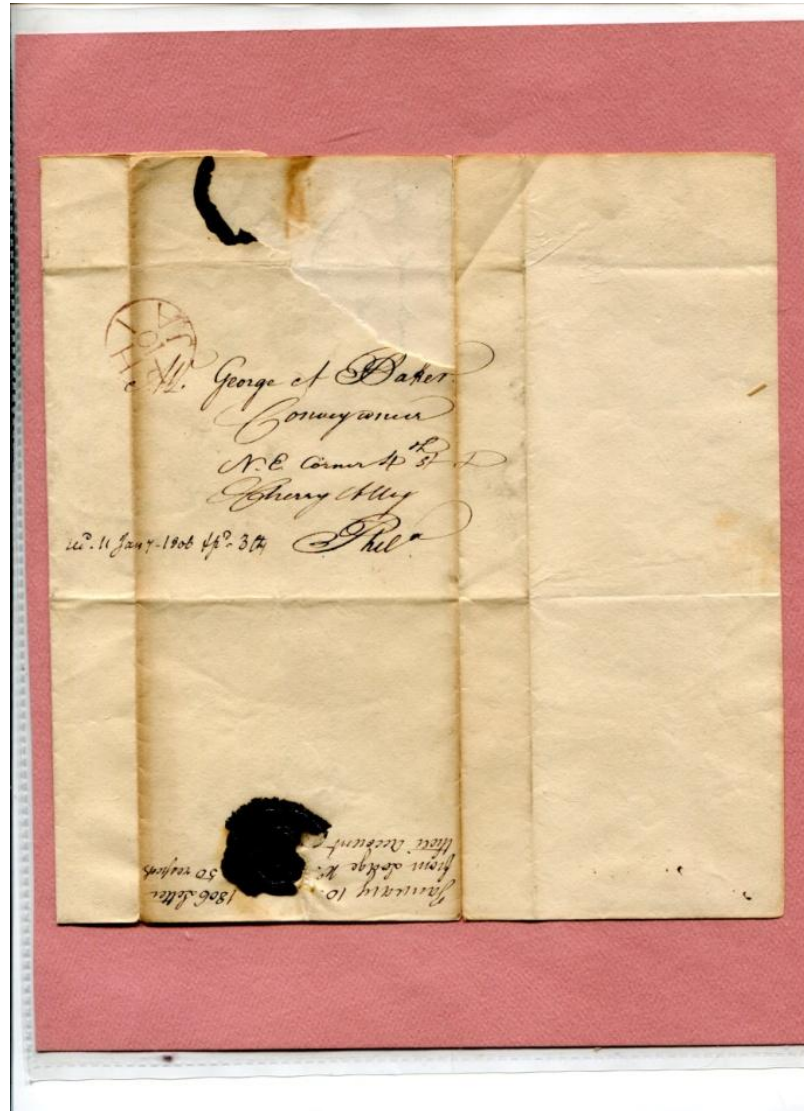 Mr. George A Baker
Conveyancer
N. E. Corner 4th St &
Cherry Alley
Phila
11 Jany 1806
January 10.
1806. Letter
from Lodge No.
50 respects
their account